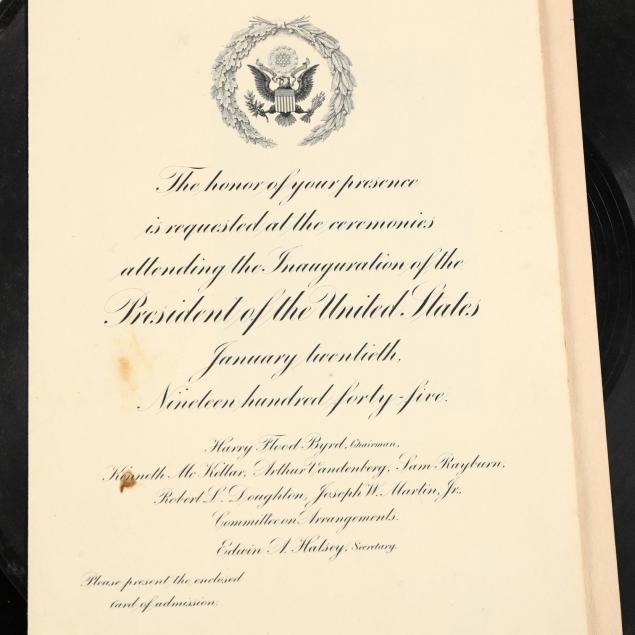 The honor of your presence
is requested at the ceremonies
attending the Inauguration of the
President of the United States
January twentieth,
Nineteen hundred forty-five.
Harry Flood Byrd, Chairman,
Kenneth McKellar, Arthur Vandenberg, Sam Rayburn,
Robert L. Doughton, Joseph W. Martin, Jr.
Committee on Arrangements.
Edwin A. Halsey, Secretary.
Please present the enclosed
card of admission.